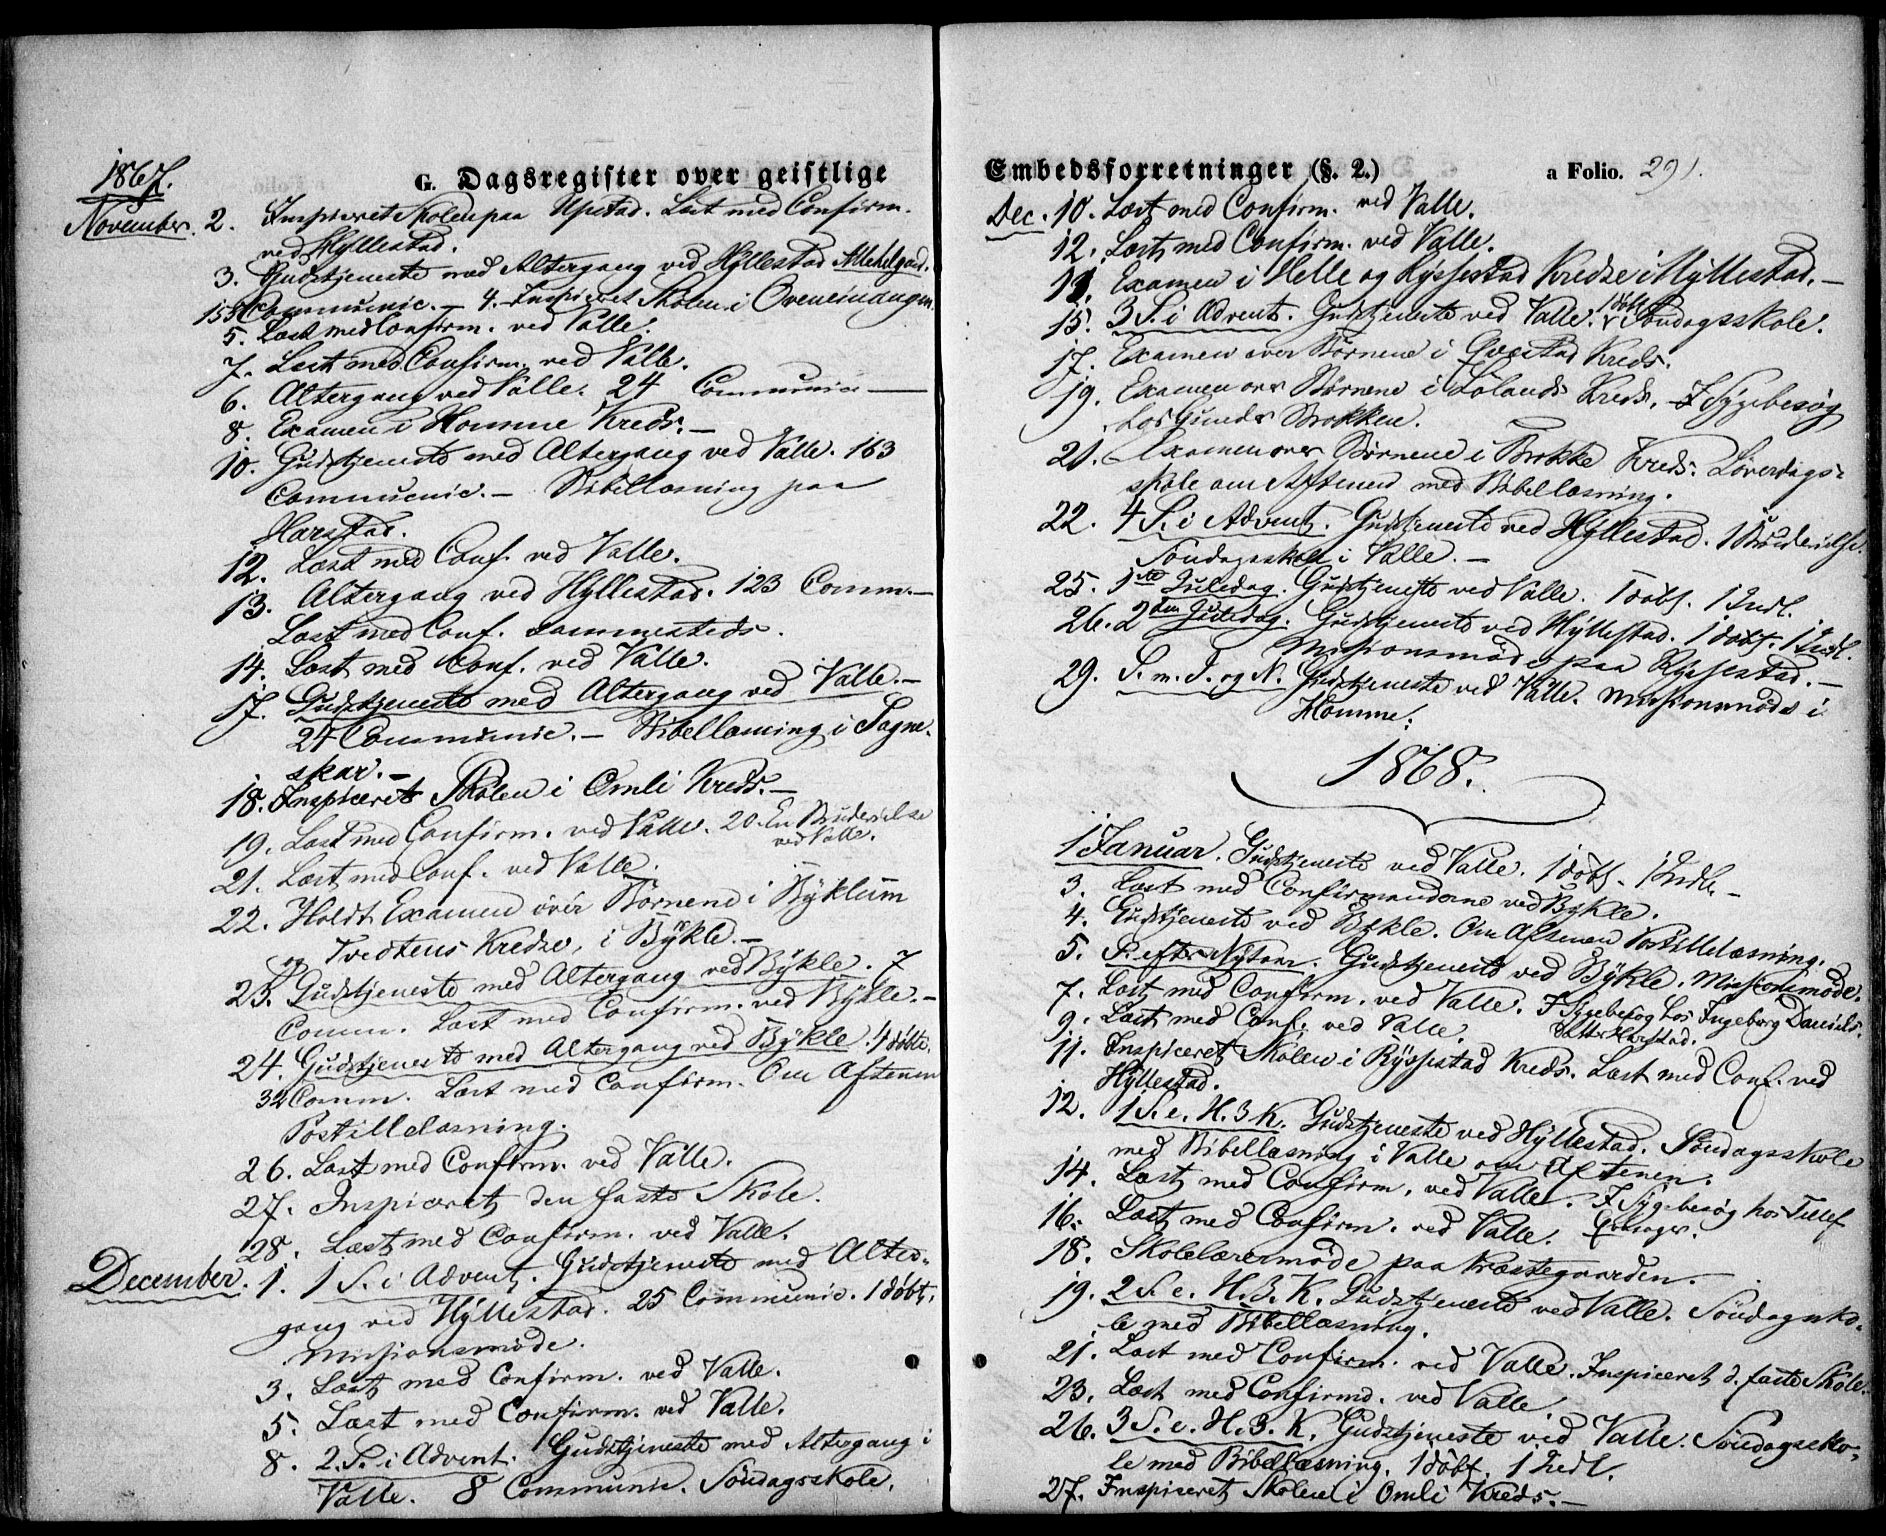 1867.
G. Dagsregister over geistlige
November. 2. Inspiceret Skolen paa Upstad. Læst med Confirm.
ved Hyllestad.
3. Gudstjeneste med Altergang ved Hyllestad Allehelgensd.
158 Communic. – 4. Inspiceret Skolen i
5. Læst med Confirm. ved Valle.
7. Læst med Confirm. ved Valle.
6. Altergang ved Valle. 24 Communic
8. Examen i Homme Kreds. –
10. Gudstjeneste med Altergang ved Valle. 163
Communic. – Bibellæsning paa
Harstad.
12. Læst med Conf. ved Valle.
13. Altergang ved Hyllestad. 123 Comm. –
Læst med Conf. sammesteds.
14. Læst med Conf. ved Valle.
17. Gudstjeneste med Altergang ved Valle. –
27 Communic. – Bibellæsning i Tagne-
skar. –
18. Inspiceret Skolen i Omli Kreds. –
19. Læst med Confirm. ved Valle. 20. En Brudevielse
ved Valle.
21. Læst med Conf. ved Valle.
22. Holdt Examen over Børnene i Byklum
og Tvedtens Kredse, i Bykle. –
23. Gudstjeneste med Altergang ved Bykle. 7
Comm. Læst med Confirm. ved Bykle. –
24. Gudstjeneste med Altergang ved Bykle. 4 døbte.
32 Comm. Læst med Confirm. Om Aftenen
Postillelæsning.
26. Læst med Confirm. ved Valle.
27. Inspiceret den faste Skole.
28. Læst med Confirm. ved Valle.
December. 1. 1 S. i Advent. Gudstjeneste med Alter-
gang ved Hyllestad. 25 Communic. 1 døbt.
Missionsmøde.
3. Læst med Confirm. ved Valle.
5. Læst med Confirm. ved Valle.
8. 2. S. i Advent. Gudstjeneste med Altergang i
Valle. 8 Communic. Søndagsskole.
Embedsforretninger (§. 2.)
a Folio. 291.
Dec. 10. Læst med Confirm. ved Valle.
12. Læst med Confirm. ved Valle.
Examen i Helle og Rysstad Kredse i Hyllestad. –
15. 3 S. i Advent. Gudstjeneste ved Valle. 1 døbt. Søndagsskole.
17. Examen over Børnene i Qvestad Kreds.
19. Examen over Børnene i Lølands Kreds. – I Sygebesøg
hos Gunder Brokken.
21. Examen over Børnene i Brokke Kreds. Løverdags-
skole om Aftenen med Bibellæsning.
22. 4 S. i Advent. Gudstjeneste ved Hyllestad. 1 Brudevielse.
Søndagsskole i Valle. –
25. 1ste Juledag. Gudstjeneste ved Valle. 1 døbt. 1 Indl.
26. 2den Juledag. Gudstjeneste ved Hyllestad. 1 døbt. 1 Indl.
Missionsmøde paa Rysstad. –
29. S. m. J. og N. Gudstjeneste ved Valle. Missionsmøde i
Homme.
1868.
1 Januar. Gudstjeneste ved Valle. 1 døbt. 1 Indl. –
3. Læst med Confirmanderne ved Bykle.
4. Gudstjeneste ved Bykle. Om Aftenen Postillelæsning.
5. S. efter Nytaar. Gudstjeneste ved Bykle. Missionsmøde.
7. Læst med Confirm. ved Valle. I Sygebesøg hos Ingeborg Daniels-
datter Harstad.
9. Læst med Conf. ved Valle.
11. Inspiceret Skolen i Rysstad Kreds. Læst med Conf. ved
Hyllestad.
12. 1 S. e. H. 3 K. Gudstjeneste ved Hyllestad. Søndagsskole
med Bibellæsning i Valle om Aftenen.
14. Læst med Confirm. ved Valle. I Sygebesøg hos Tellef
16. Læst med Confirm. ved Valle.
18. Skolelærermøde paa Præstegaarden. –
19. 2 S. e. H. 3. K. Gudstjeneste ved Valle. Søndagssko-
le med Bibellæsning.
21. Læst med Confirm. ved Valle. Inspiceret d. faste Skole.
23. Læst med Confirmd. ved Valle
26. 3 S. e. H. 3. K. Gudstjeneste ved Valle. Søndagssko-
le med Bibellæsning. 1 døbt. 1 Indl.
27. Inspiceret Skolen i Omli Kreds. –